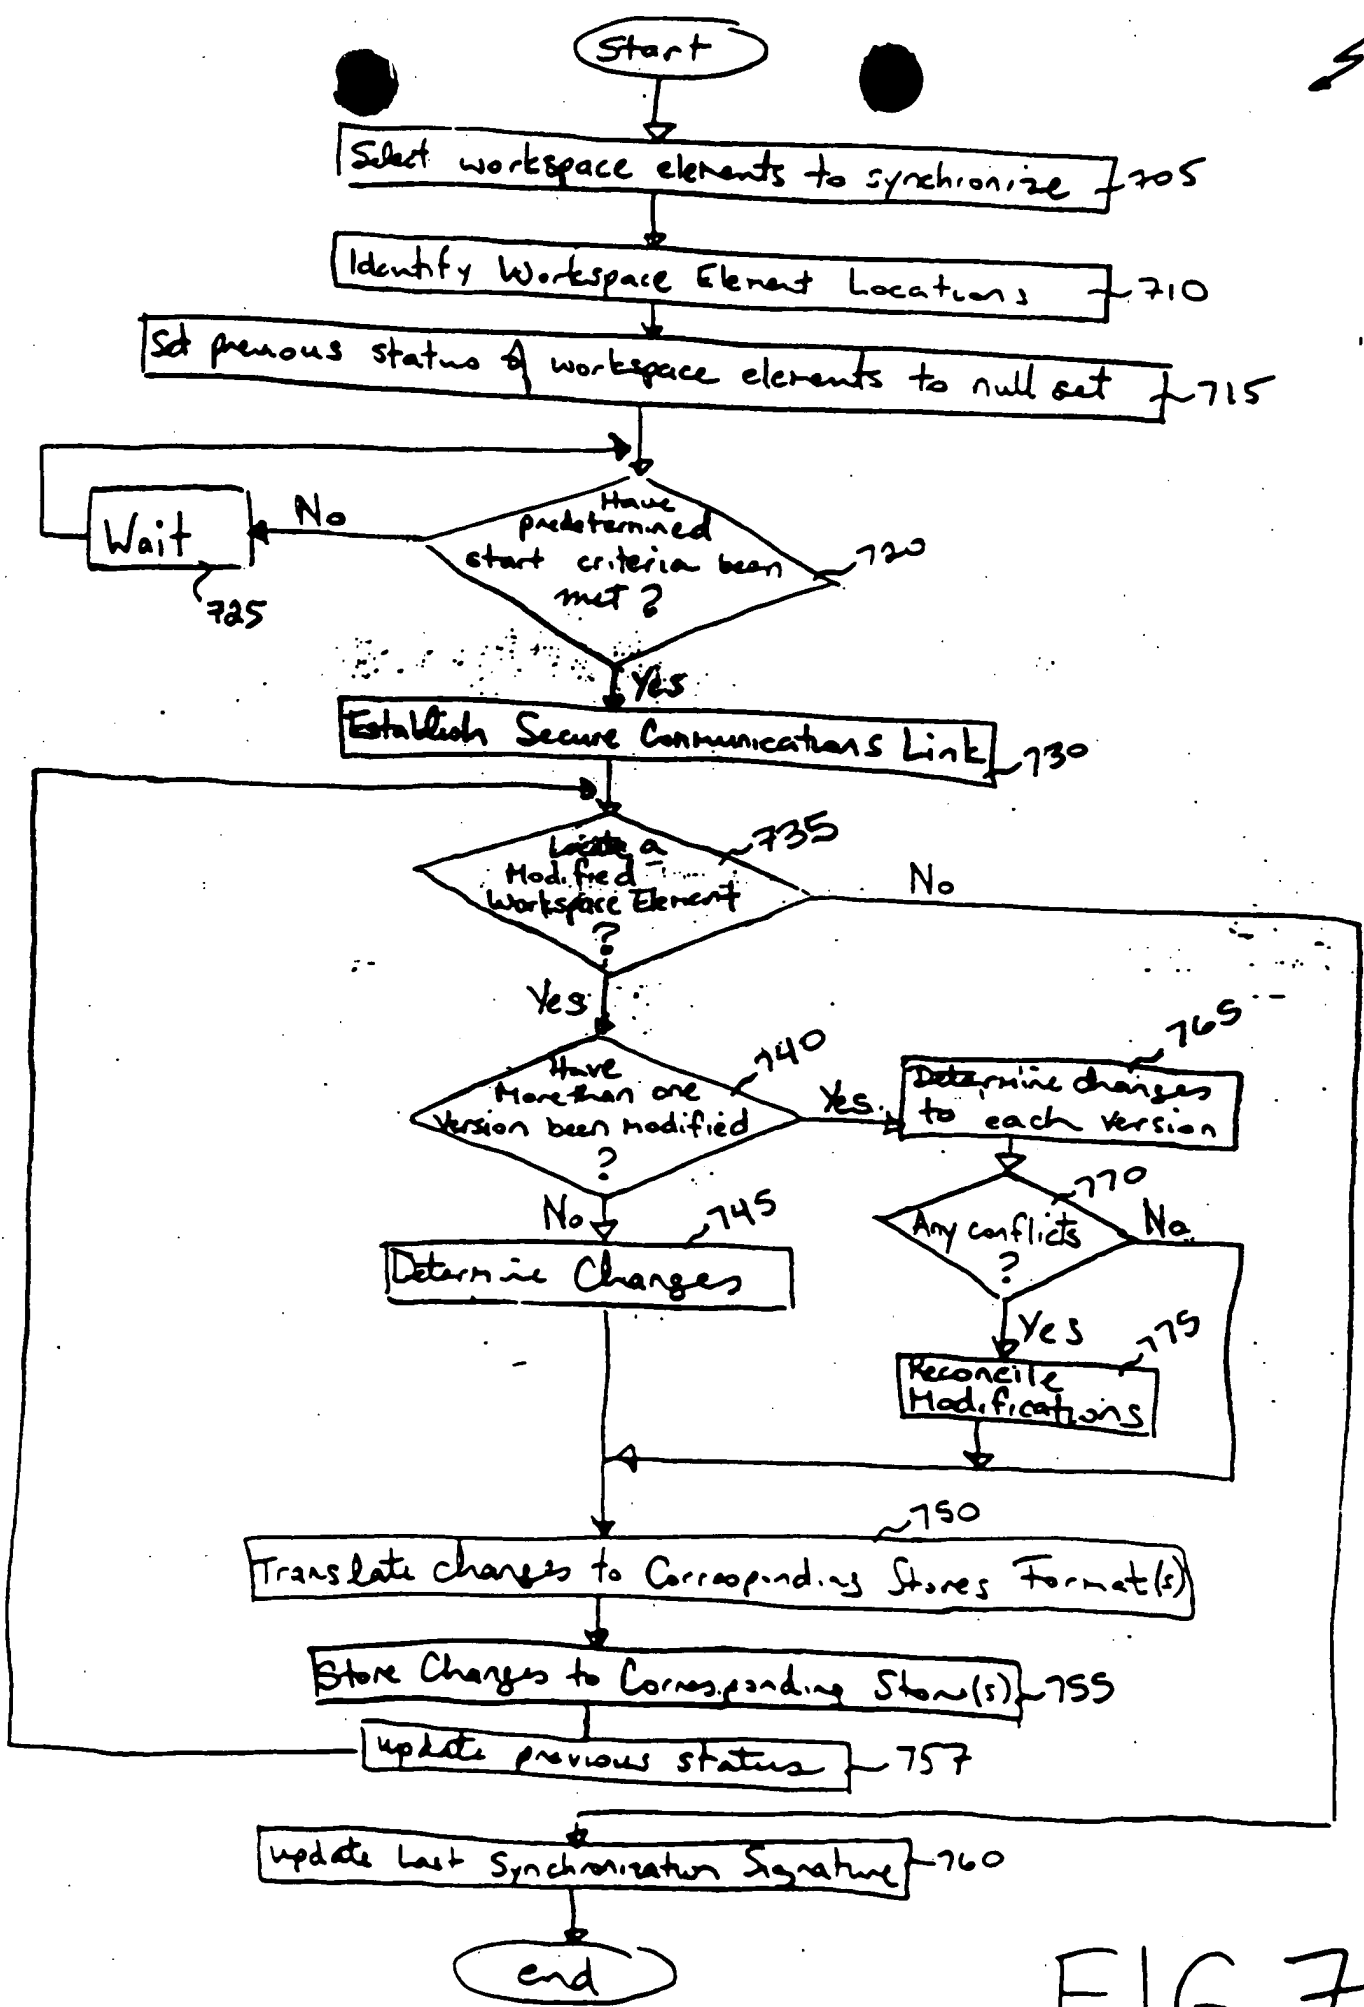 Start
Select workspace elements to synchronize 705
Identify Workspace Element Locations 710
Set previous status of workspace elements to null set 715
Have
predetermined
start criteria been
met ?
720
No
Wait
725
Yes
Establish Secure Communications Link 730
Locate a
Modified
Workspace Element
?
735
No
Yes
Have
More than one
Version been Modified
?
740
Yes
Determine changes
to each version
765
No
Determine Changes
745
Any conflicts
?
770
No
Yes
Reconcile
Modifications
775
750
Translate Changes to Corresponding Stores Format(s)
Store Changes to Corresponding Store(s) 755
update previous status 757
update Last Synchronization Signature 760
end
FIG 7